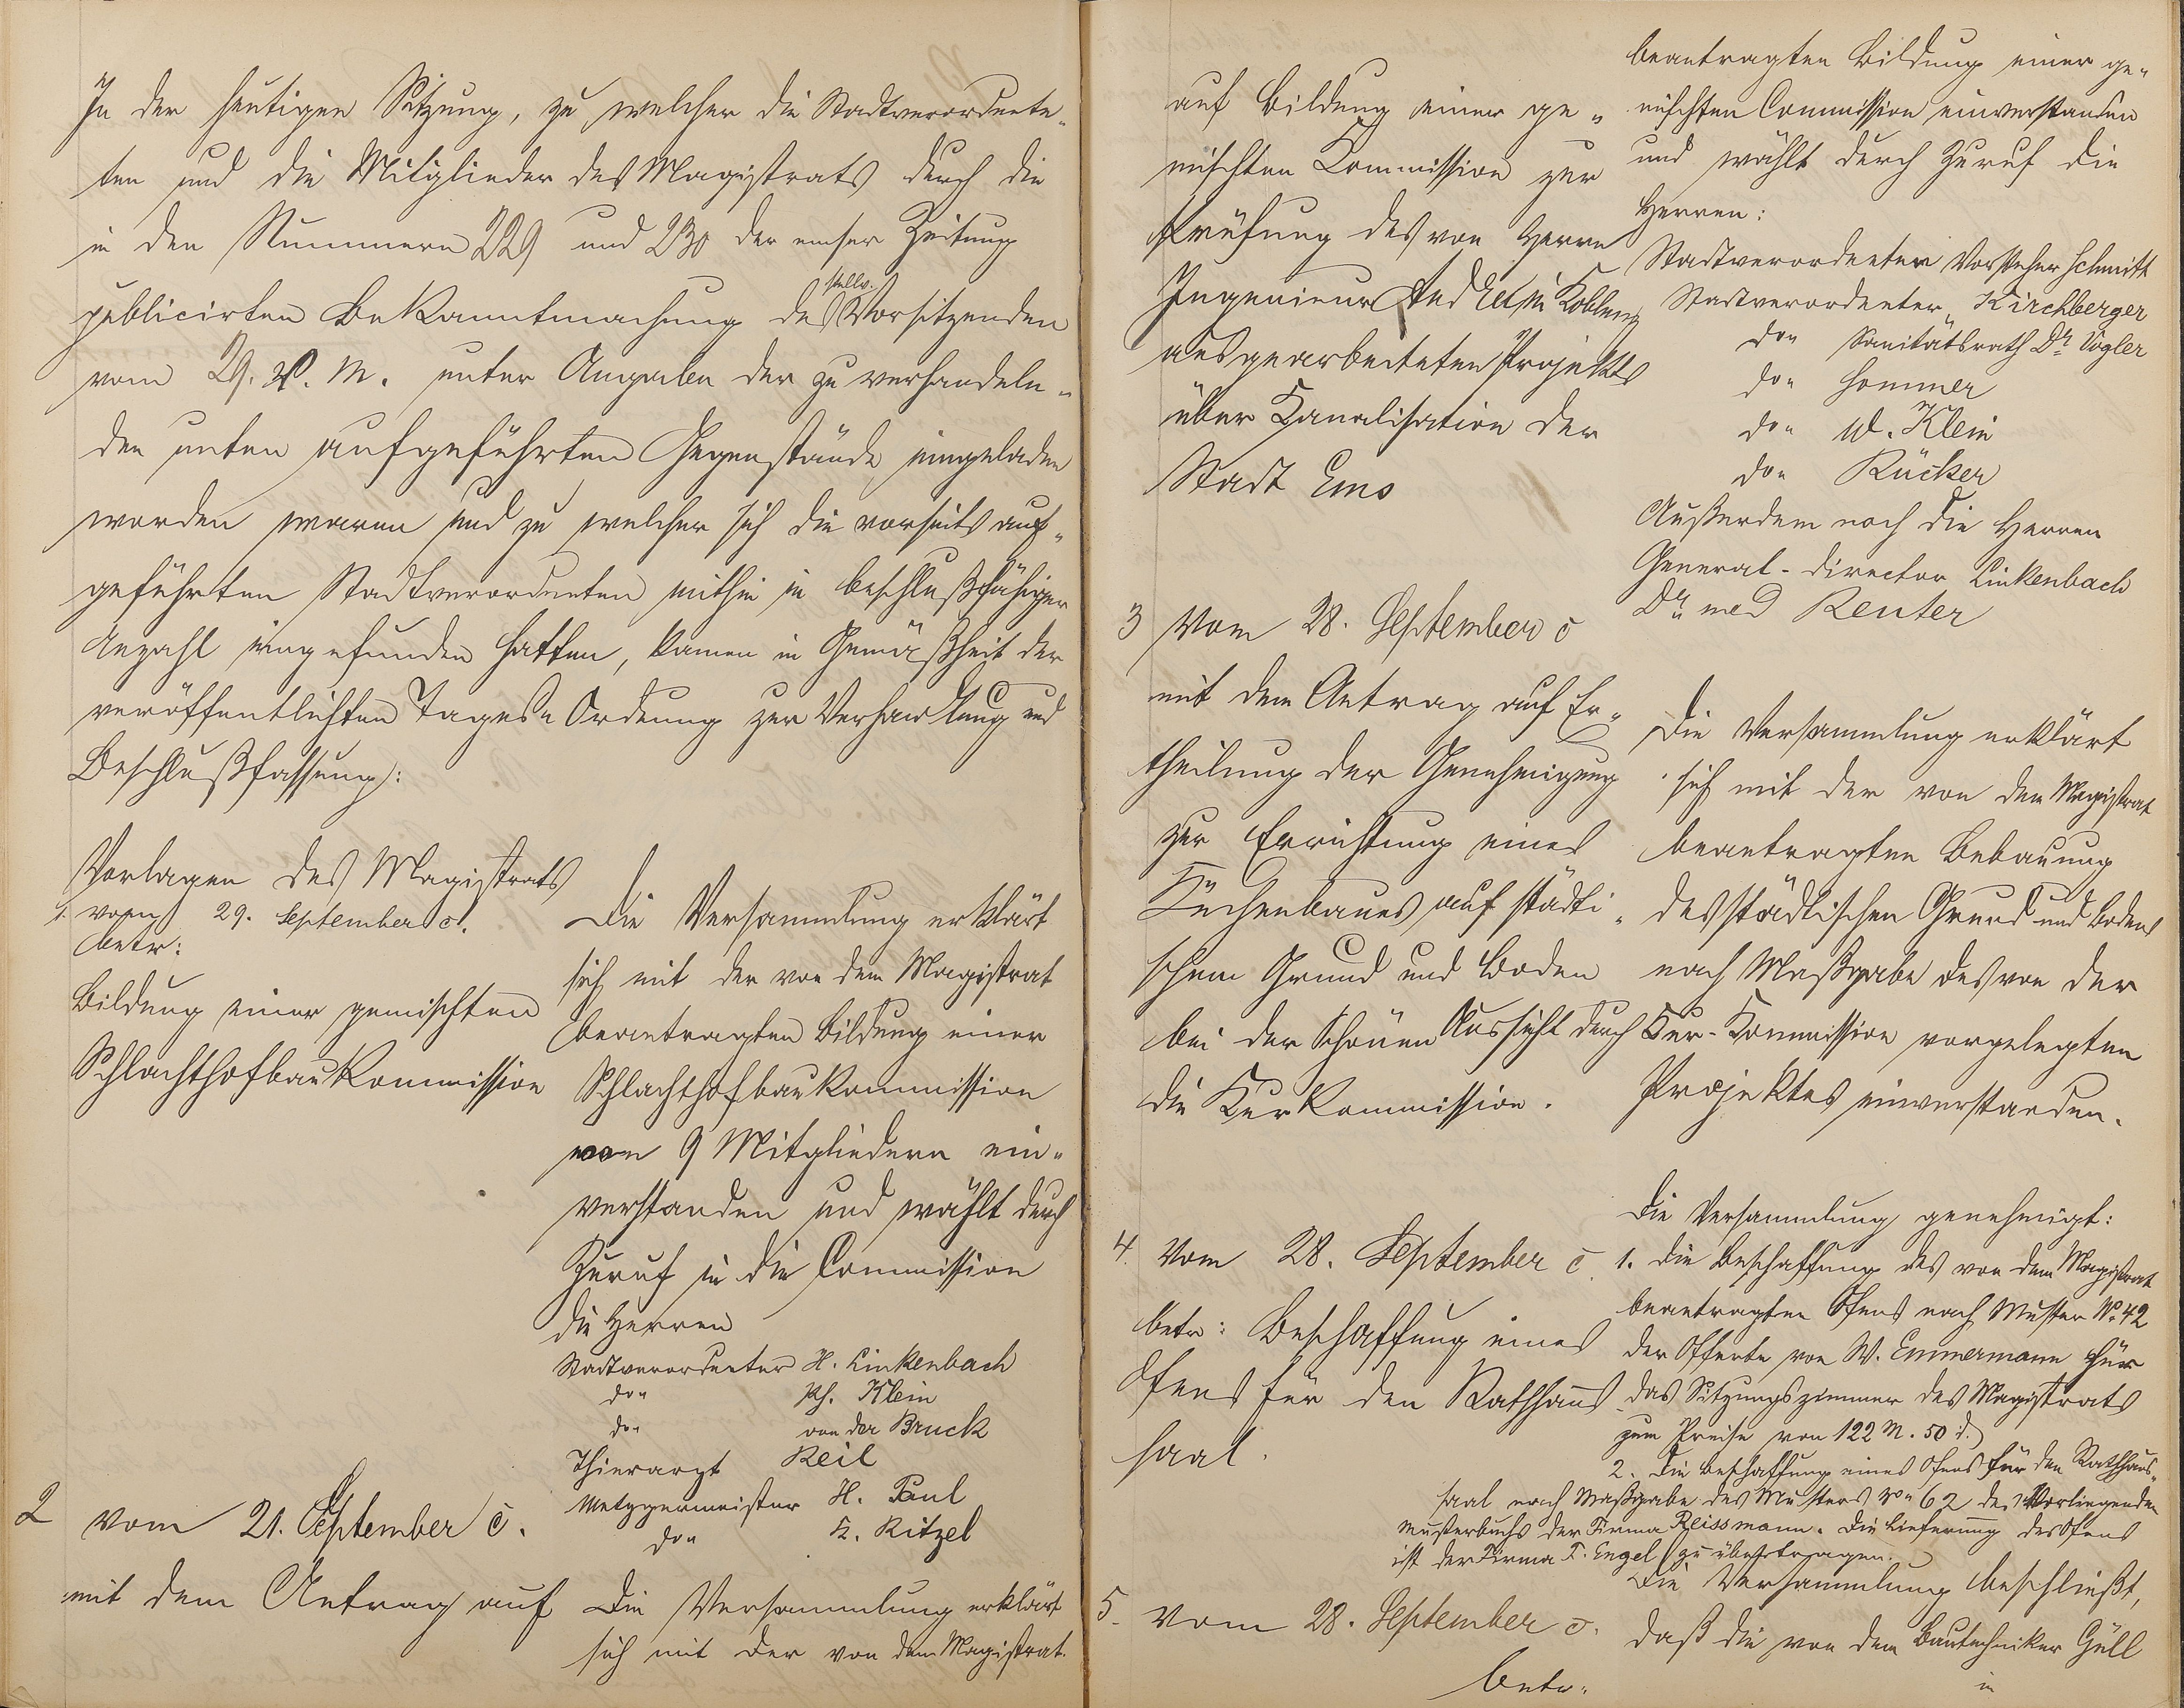 In der heutigen Sitzung, zu welcher die Stadtverordnete-
ten und die Mitglieder des Magistrats durch die
in den Nummern 229 und 230 der emser Zeitung
publicirten Bekanntmachung des stellv. Vorsitzenden
vom 29. v. M. unter Angabe der zu verhandeln-
den unten aufgeführten Gegenstände eingeladen
worden waren und zu welcher sich die vorseits auf-
geführten Stadtverordneten mithin in beschlußfähiger
Anzahl eingefunden hatten, kamen in Gemäßheit der
veröffentlichten Tages-Ordnung zur Verhandlung und
Beschlußfassung:
Vorlagen des Magistrats
1. vom 29. September c.
betr:
Bildung einer gemischten
Schlachthofbaukommission
Die Versammlung erklärt
sich mit der von dem Magistrat
beantragten Bildung einer
Schlachthofbaukommission
von 9 Mitgliedern ein-
verstanden und wählt durch
Zuruf in die Commission
die Herren
Stadtverordneter H. Linkenbach
do. Ph. Klein
do. von der Bruck
Thierarzt Keil
Metzgermeister H. Paul
do. F. Ritzel
2 vom 21. September c.
mit dem Antrag auf
Die Versammlung erklärt
sich mit der von dem Magistrat
auf Bildung einer ge-
mischten Commission zur
Prüfung des von Herrn
Ingenieur in Koblenz
ausgearbeiteten Projekts
über Kanalisation der
Stadt Ems
beantragten Bildung einer ge-
mischten Commission einverstanden
und wählt durch Zuruf die
Herren:
Stadtverordneten Vorsteher Schmitt
Stadtverordneter Kirchberger
do. Sanitätsrath Dr. Vogler
do. Sommer
do. W. Klein
do. Rücker
Außerdem noch die Herren
General-Director Linkenbach
Dr. med Reuter
3 Vom 28. September c
mit dem Antrag auf Er-
theilung der Genehmigung
zur Errichtung eines
Küchenbaues auf städti-
schem Grund und Boden
bei der Schönen Aussicht durch
die Kurkommission.
Die Versammlung erklärt
sich mit der von dem Magistrat
beantragten Bebauung
des städtischen Grund und Bodens
nach Maßgabe des von der
Kur-Kommission vorgelegten
Projektes einverstanden.
4. Vom 28. September c.
betr: Beschaffung eines
Ofens für den Rathhaus
saal.
Die Versammlung genehmigt:
1. die Beschaffung des von dem Magistrat
beantragten Ofens nach Muster No. 42
der Offerte von W. Emmermann für
das Sitzungszimmer des Magistrats
zum Preise von 122 M. 50 d.
2. Die Beschaffung eines Ofens für den Rathhaus-
saal nach Maßgabe des Musters No. 62 des Vorliegenden
Musterbuchs der Firma Reissmann. Die Lieferung des Ofens
ist der Firma F. Engel zu übertragen.
5. Vom 28. September c.
betr.
Die Versammlung beschließt,
daß die von dem Bautechniker Güll
in